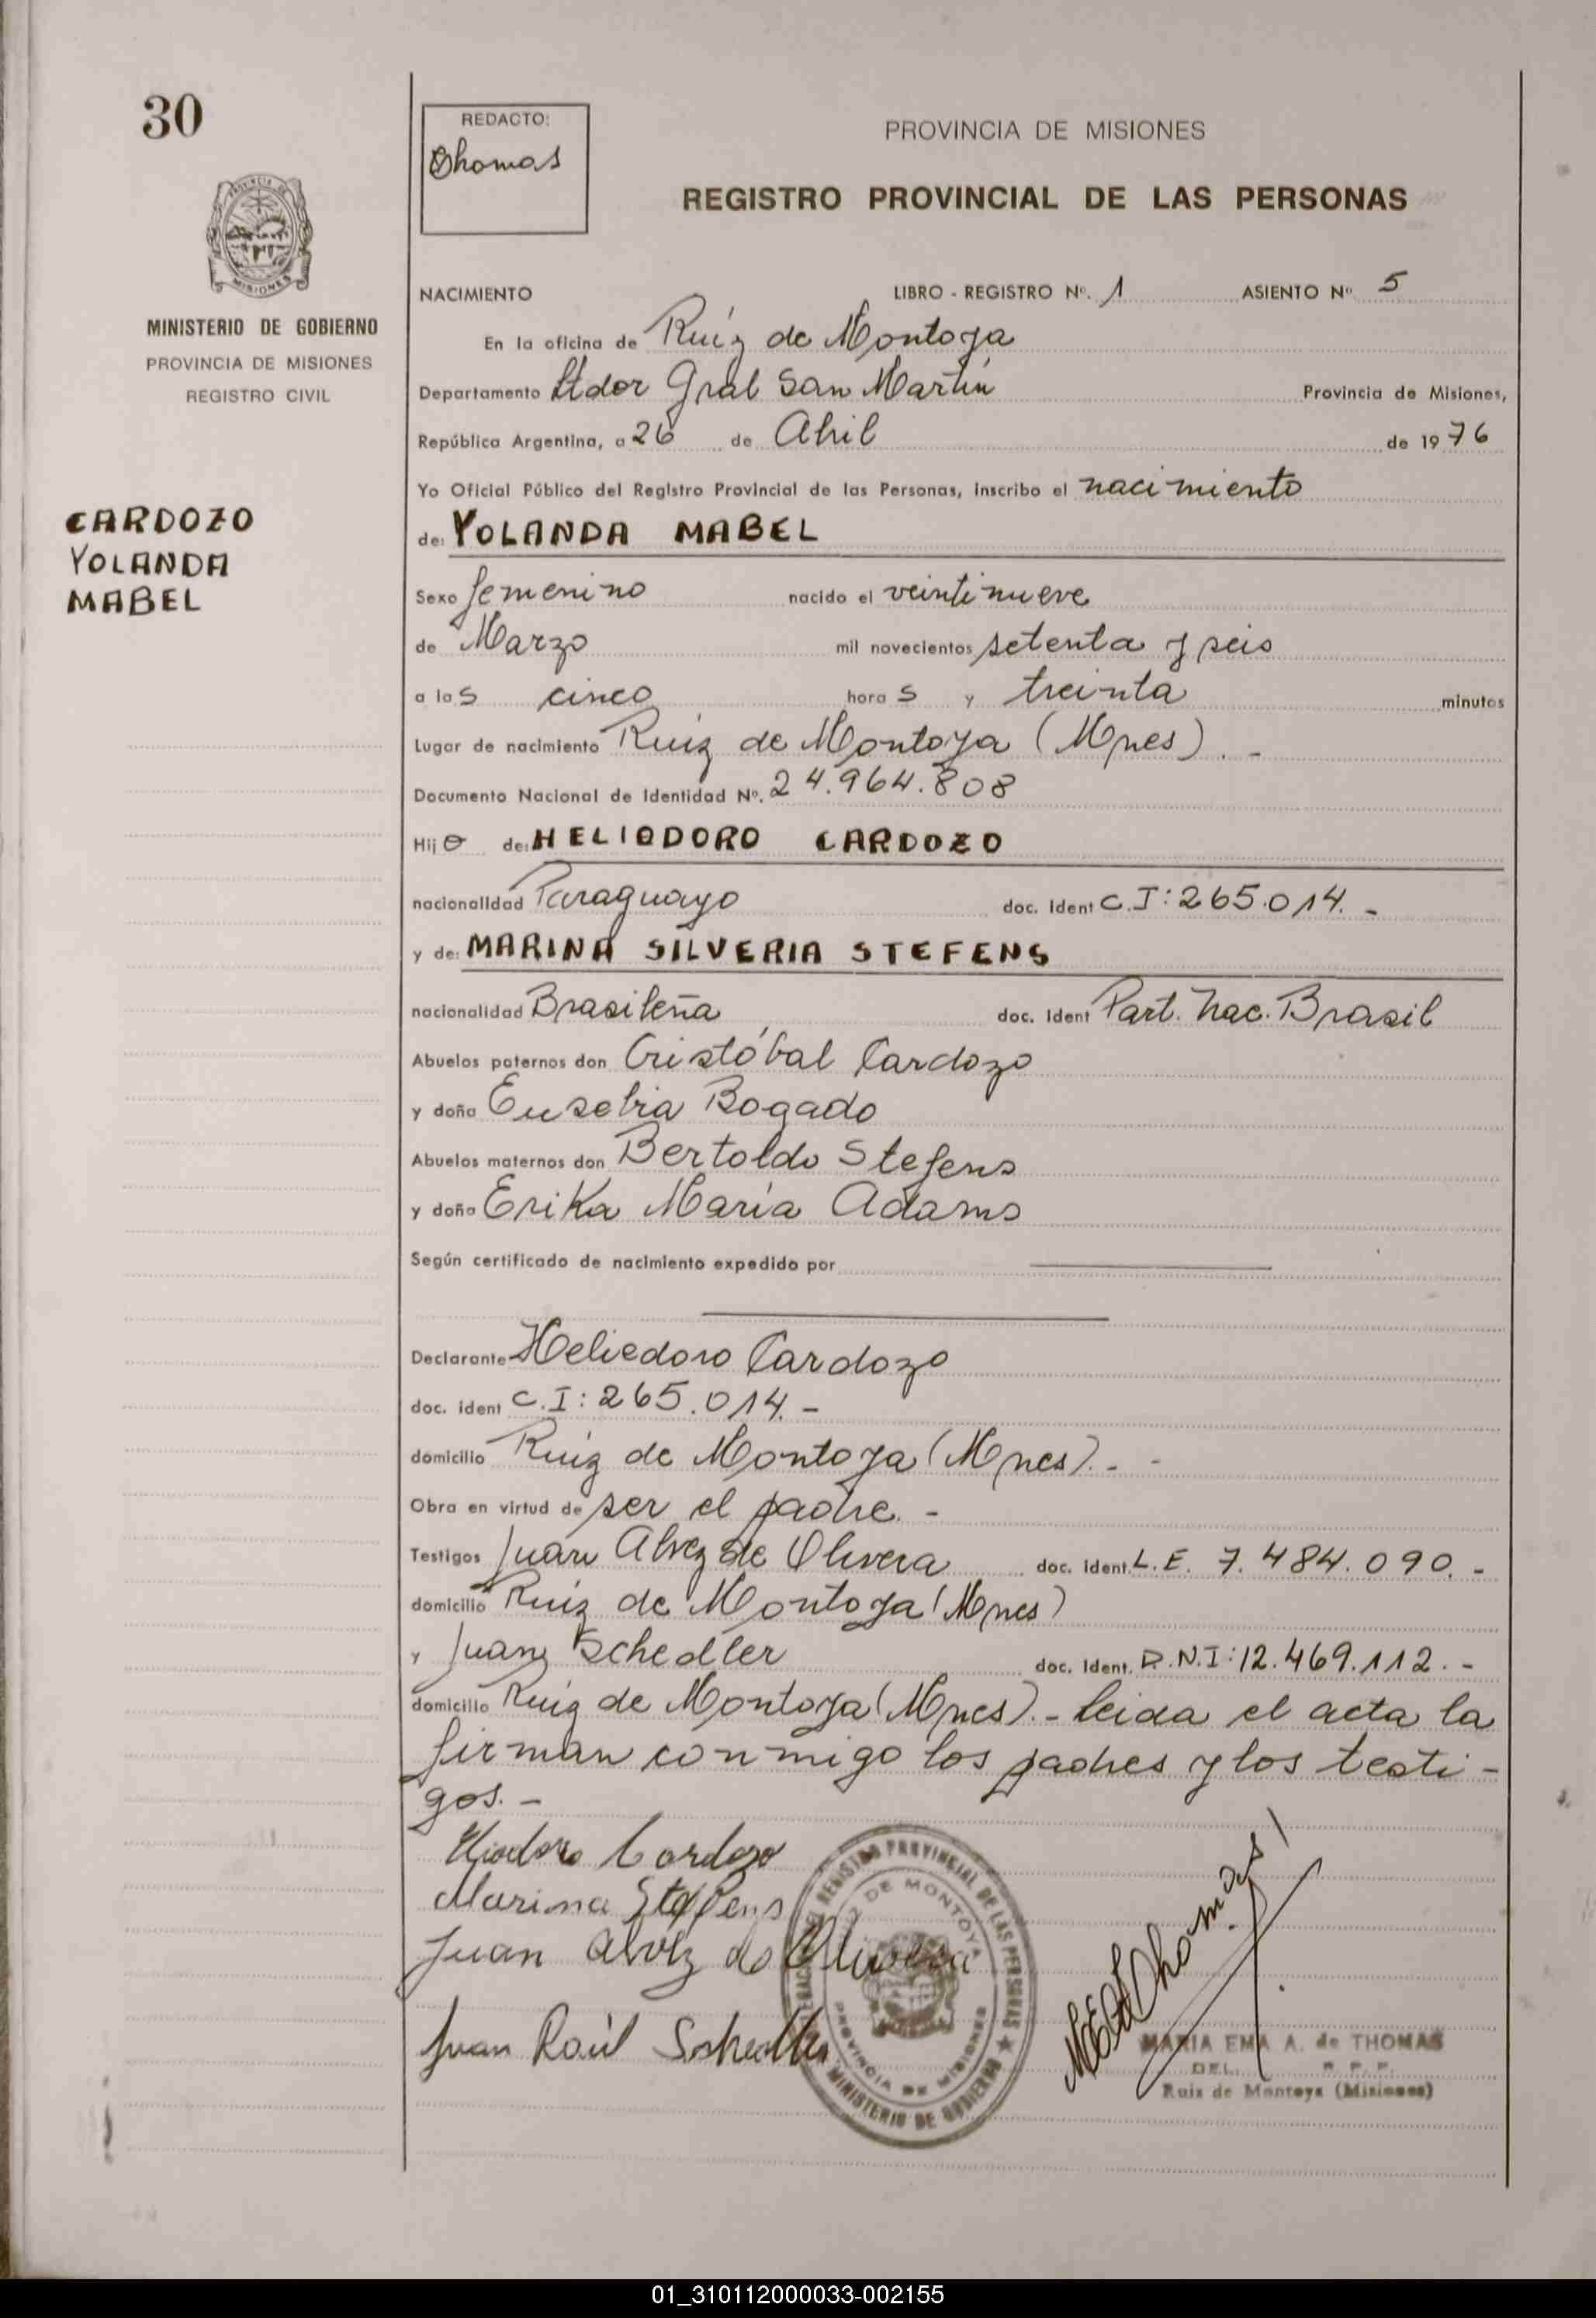 30
REDACTO:
Thomas
PROVINCIA DE MISIONES
REGISTRO PROVINCIAL DE LAS PERSONAS
MISIONES
MINISTERIO DE GOBIERNO
PROVINCIA DE MISIONES
REGISTRO CIVIL
CARDOZO
YOLANDA
MABEL
NACIMIENTO LIBRO - REGISTRO Nº. 1 ASIENTO Nº 5
En la oficina de Ruíz de Montoya
Departamento Ltdor Gral San Martín Provincia de Misiones,
República Argentina, a 26 de Abril de 1976
Yo Oficial Público del Registro Provincial de las Personas, inscribo el nacimiento
de: YOLANDA MABEL
Sexo femenino nacido el veintinueve
de Marzo mil novecientos setenta y seis
a las cinco horas y treinta minutos
Lugar de nacimiento Ruíz de Montoya (Mnes). -
Documento Nacional de Identidad Nº. 24.964.808
Hij de: HELIODORO CARDOZO
nacionalidad Paraguayo doc. Ident C.I: 265.014. -
y de: MARINA SILVERIA STEFENS
nacionalidad Brasileña doc. Ident Part. Nac. Brasil
Abuelos paternos don Cristóbal Cardozo
y doña Eusebia Bogado
Abuelos maternos don Bertoldo Stefens
y doña Erika María Adams
Según certificado de nacimiento expedido por
Declarante Heliodoro Cardozo
doc. ident C.I: 265.014. -
domicilio Ruíz de Montoya (Mnes). -
Obra en virtud de ser el padre. -
Testigos Juan Alvez de Olivera doc. ident. L.E. 7.484.090. -
domicilio Ruíz de Montoya (Mnes)
y Juan Schedler doc. Ident. D.N.I: 12.469.112. -
domicilio Ruíz de Montoya (Mnes). - Leida el acta la
firman conmigo los padres y los testi-
gos. -
Eliodoro Cardozo
Marina Steffens
Juan Alvez de Olivera
Juan Raúl Schedler
REGISTRO PROVINCIAL DE LAS PERSONAS
DE MONTOYA
PROVINCIA DE MISIONES
MINISTERIO DE GOBIERNO
MARIA EMA A. de THOMAS
DEL. R. P. P.
Ruiz de Montoya (Misiones)
01_310112000033-002155